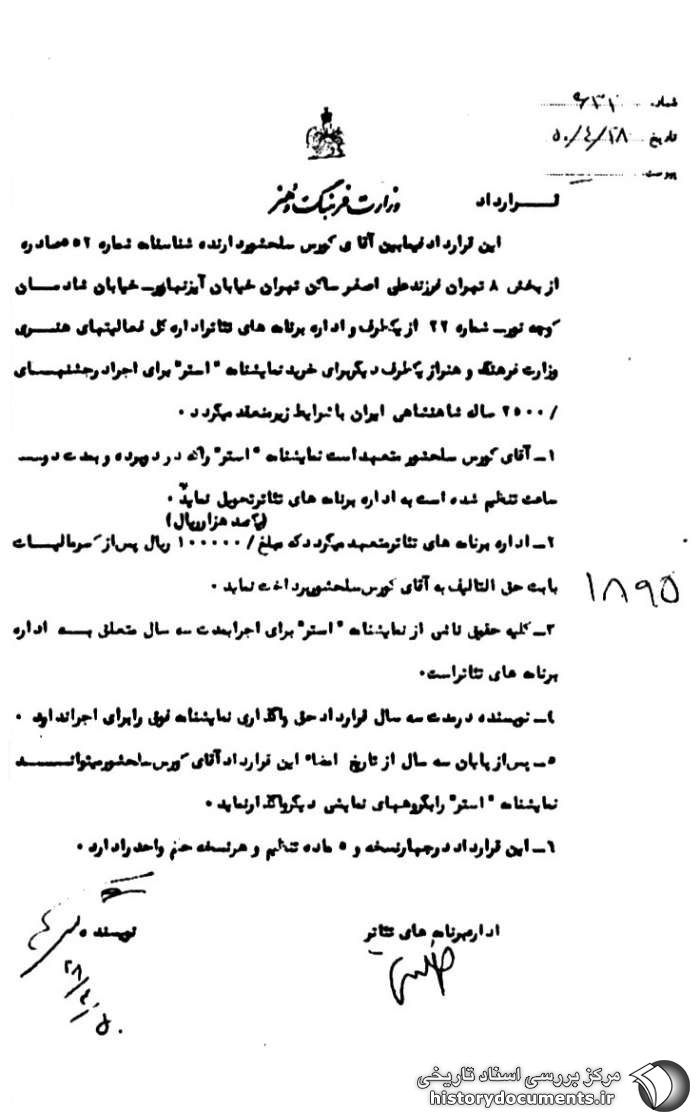 شماره ۶۳۱
تاریخ ۵۰/۴/۲۸
پیوست
وزارت فرهنگ و هنر
قـــرارداد
این قرارداد فیمابین آقای کورس سلحشور دارنده شناسنامه شماره ۵۵۲ صادره
از بخش ۸ تهران فرزند علی اصغر ساکن تهران خیابان آیزنهاور ـ خیابان شادمـــان
کوچه نور ـ شماره ۲۲ از یکطرف و اداره برنامه های تئاتر اداره کل فعالیتهای هنـــری
وزارت فرهنگ و هنر از یکطرف دیگر برای خرید نمایشنامه " استر" برای اجرا در جشنهـــای
/۲۵۰۰ ساله شاهنشاهی ایران با شرایط زیر منعقد میگردد .
۱ـ آقای کورس سلحشور متعهد است نمایشنامه " استر" را که در دو پرده و بمدت دوســـ
ساعت تنظیم شده است به اداره برنامه های تئاتر تحویل نماید .
(یکصد هزار ریال)
۲ـ اداره برنامه های تئاتر متعهد میگردد که مبلغ /۱۰۰۰۰۰ ریال پس از کسر مالیـــات
بابت حق التالیف به آقای کورس سلحشور پرداخت نماید .
۱۸۹۵
۳ـ کلیه حقوق ناشی از نمایشنامه " استر" برای اجرا بمدت سه سال متعلق بـــه اداره
برنامه های تئاتر است.
۴ـ نویسنده در مدت سه سال قرارداد حق واگذاری نمایشنامه فوق را برای اجرا ندارد .
۵ـ پس از پایان سه سال از تاریخ امضاء این قرارداد آقای کورس سلحشور میتوانـــد
نمایشنامه " استر" را بگروههای نمایشی دیگر واگذار نماید .
۶ـ این قرارداد در چهار نسخه و ۵ ماده تنظیم و هر نسخه حکم واحد را دارد .
اداره برنامه های تئاتر
نویسنده
۲۸/۴/۵۰
مرکز بررسی اسناد تاریخی
historydocuments.ir